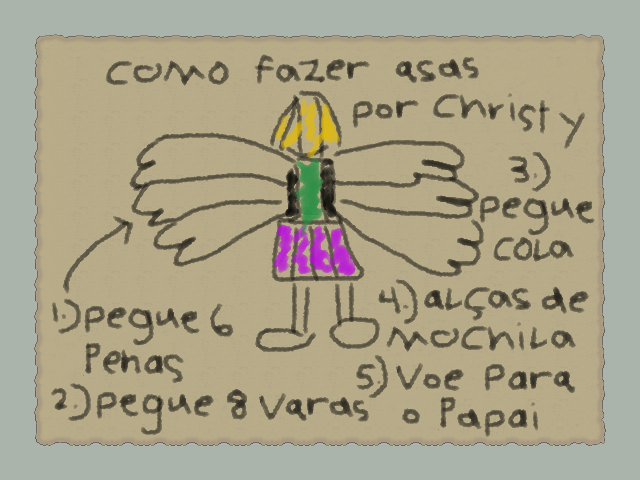 como fazer asas
por Christy
1.) pegue 6
Penas
2.) pegue 8 varas
3.)
pegue
cola
4.) alças de
mochila
5.) Voe Para
o Papai